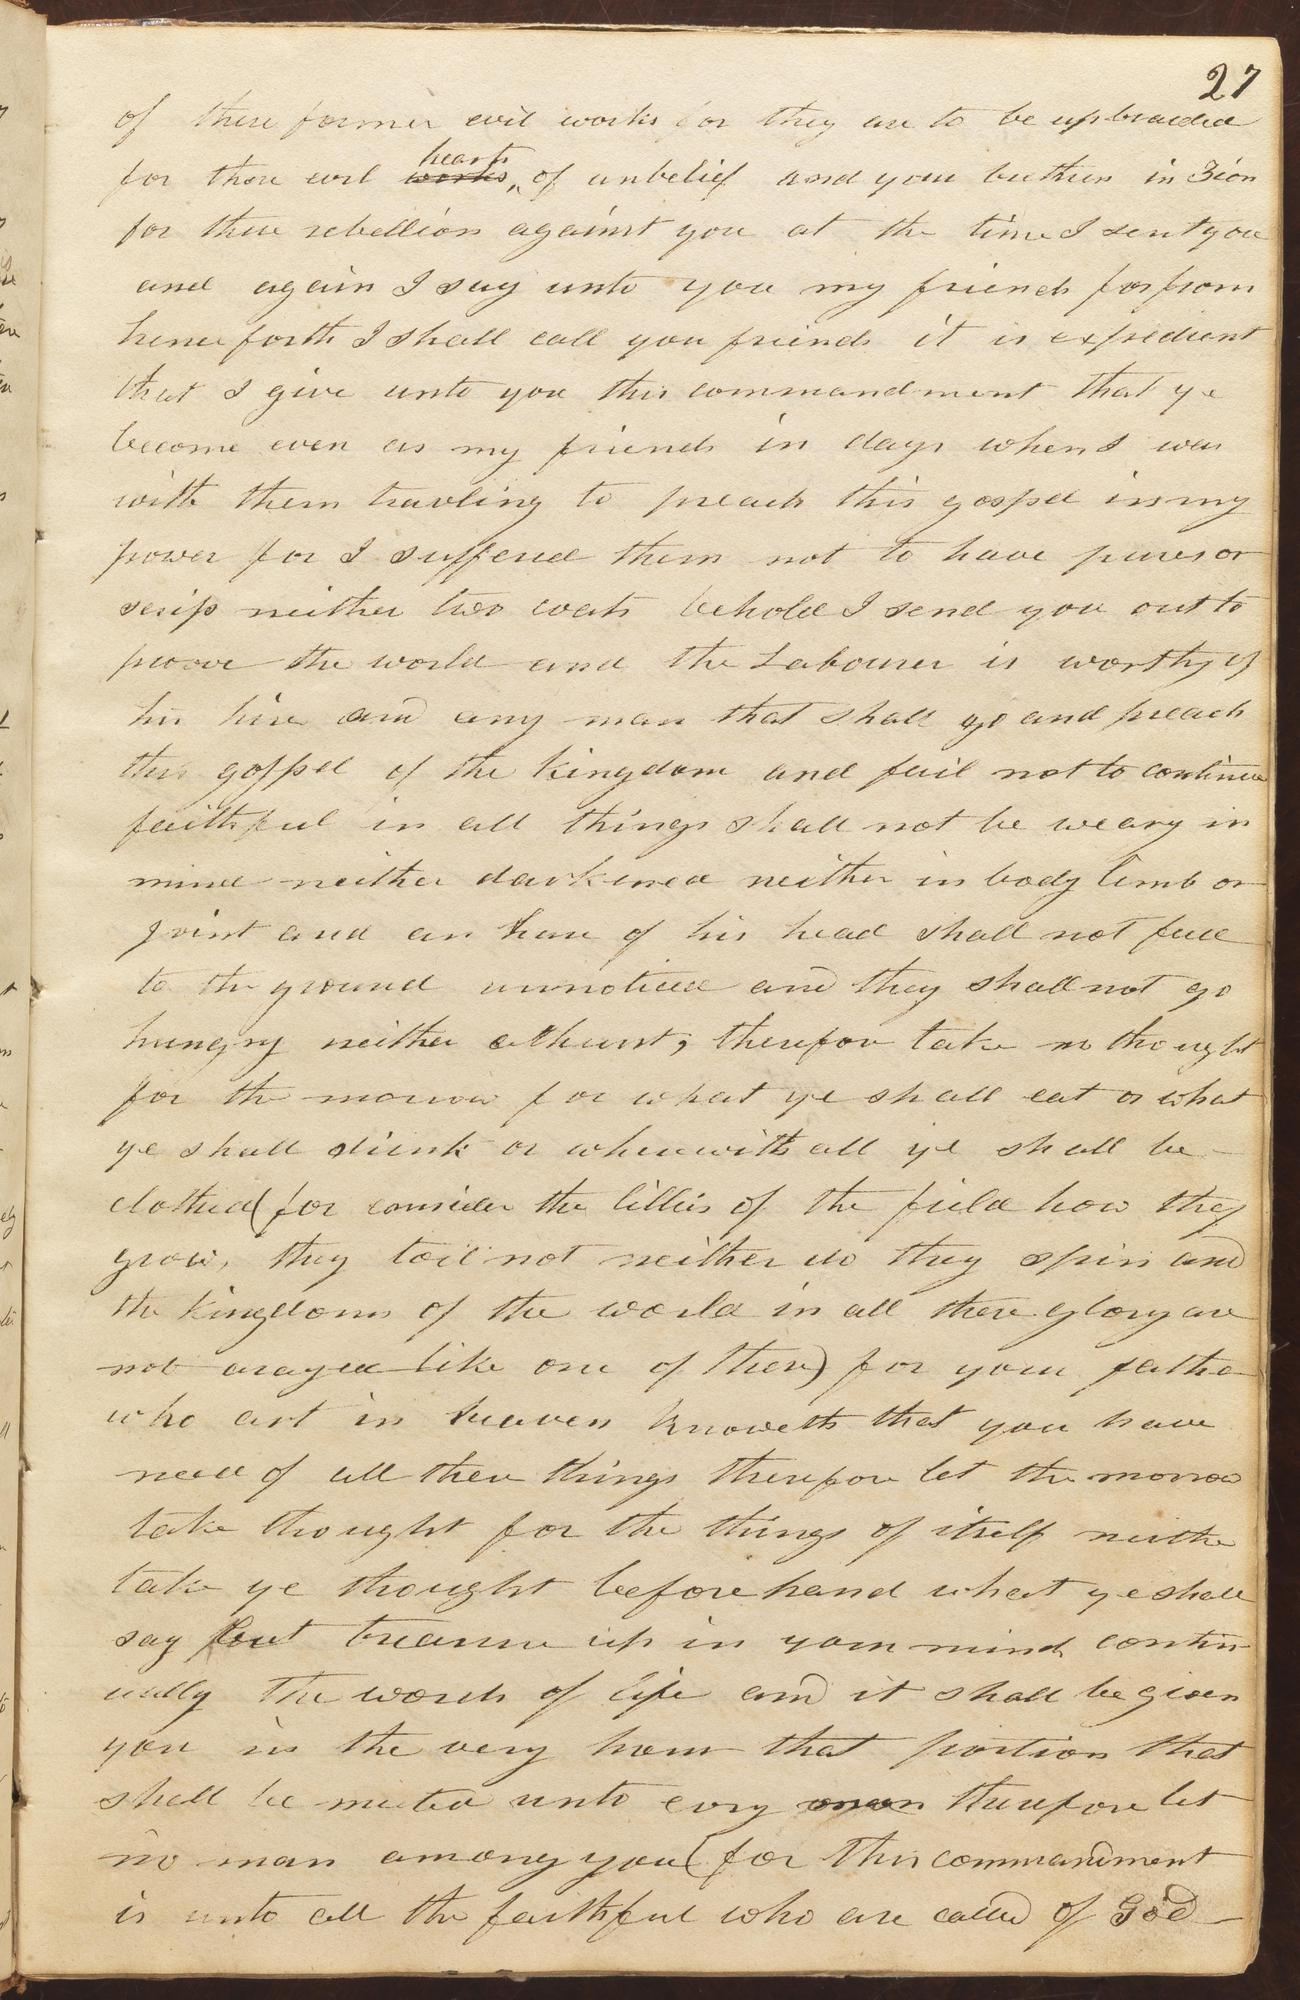 27
of there former evil works for they are to be upbraided
for there evil works hearts of unbelief and your brethren in Zion
for there rebellion against you at the time I sent you
and again I say unto you my friends for from
henceforth I shall call you friends it is expedient
that I give unto you this commandment that ye
become even as my friends in days when I was
with them travling to preach this gospel in my
power for I suffered them not to have purse or
scrip neither two coats behold I send you out to
proove the world and the Labourer is worthy of
his hire and any man that shall go and preach
this gospel of the kingdom and fail not to continue
faithful in all things shall not be weary in
mind neither darkened neither in body limb or
joint and an hare of his head shall not fall
to the ground unnoticed and they shall not go
hungry neither athurst; therefor take no thought
for the morrow for what ye shall eat or what
ye shall drink or wherewithall ye shall be
clothed (for consider the lillies of the field how they
grow, they toil not neither do they spin and
the kingdoms of the world in all there glory are
not arayed like one of these) for your father
who art in heaven knoweth that you have
need of all these things therefore let the morrow
take thought for the things of itself neither
take ye thought beforehand what ye shall
say but treasure up in your minds contin
ually the words of life and it shall be given
you in the very hour that portion that
shall be meeted unto evry man therefore let
no man among you (for this commandment
is unto all the faithful who are called of God